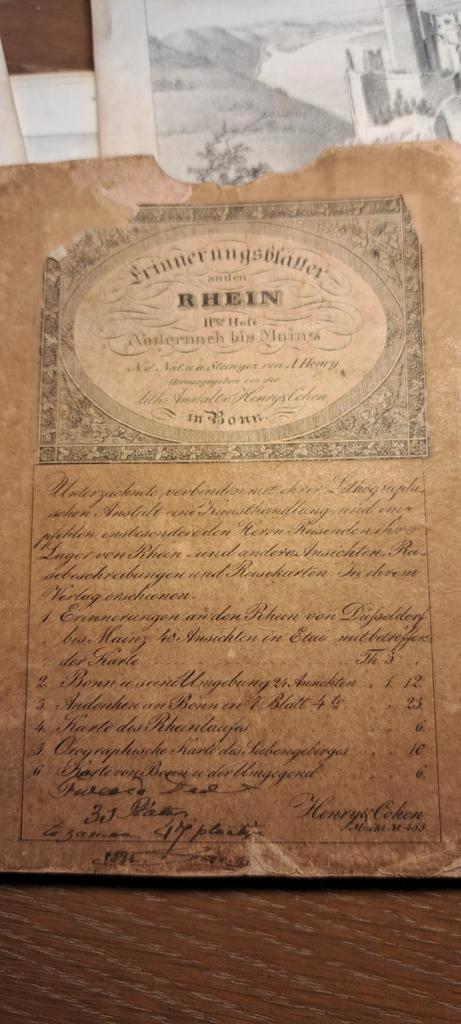 Erinnerungsblätter
an den
RHEIN
IItes Heft
Andernach bis Mainz
N.d. Nat. u. a. Steingez. von A. Henry.
Herausgegeben von der
Lith. Anstalt v. Henry & Cohen
in Bonn.
Unterzeichnete verbinden mit ihrer Lithographi-
schen Anstalt eine Kunsthandlung, und em-
pfehlen insbesondere den Herrn Reisenden ihr
Lager von Rhein- und andern Ansichten, Rei-
sebeschreibungen und Reisekarten. In ihrem
Verlag erschienen.
1. Erinnerungen an den Rhein von Düsseldorf
bis Mainz 48 Ansichten in Etui mit betreffen
der Karte . . . . . . . . . Th 3 . "
2. Bonn u seine Umgebung 24 Ansichten . 1. 12.
3. Andenken an Bonn in 7 Blatt 4to . . 23.
4. Karte des Rheinlaufes . . . . 6.
5. Orographische Karte des Siebengebirges . . 10
6. Karte von Bonn u der Umgegend . . 6.
Tweede
31 Platen
te zamen 47
Henry & Cohen
Markt No 453.